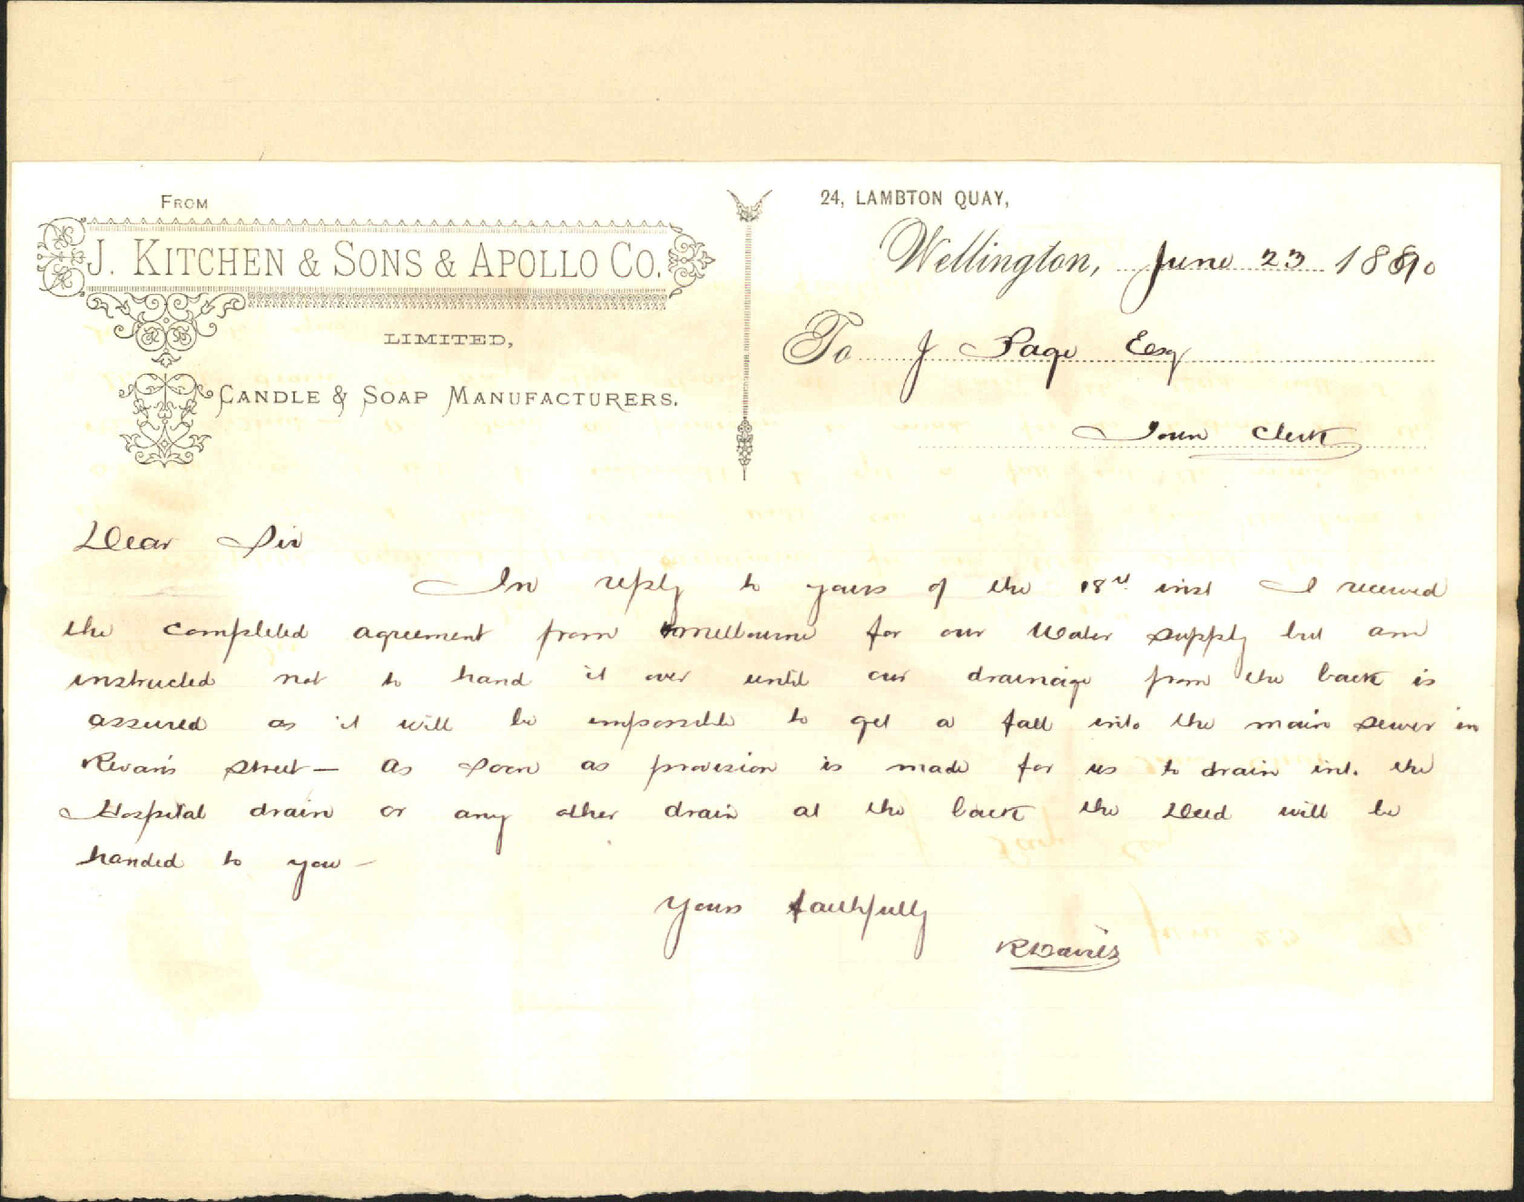 FROM
J. KITCHEN & SONS & APOLLO CO.
LIMITED,
CANDLE & SOAP MANUFACTURERS.
24, LAMBTON QUAY,
Wellington, June 23 1890
To J Page Esq
Town Clerk
Dear Sir
In reply to yours of the 18th inst I received
the completed agreement from Melbourne for our Water supply but am
instructed not to hand it over until our drainage from the back is
assured as it will be impossible to get a fall into the main sewer in
Revans Street — As soon as provision is made for us to drain into the
Hospital drain or any other drain at the back the Deed will be
handed to you —
Yours faithfully
R Davies